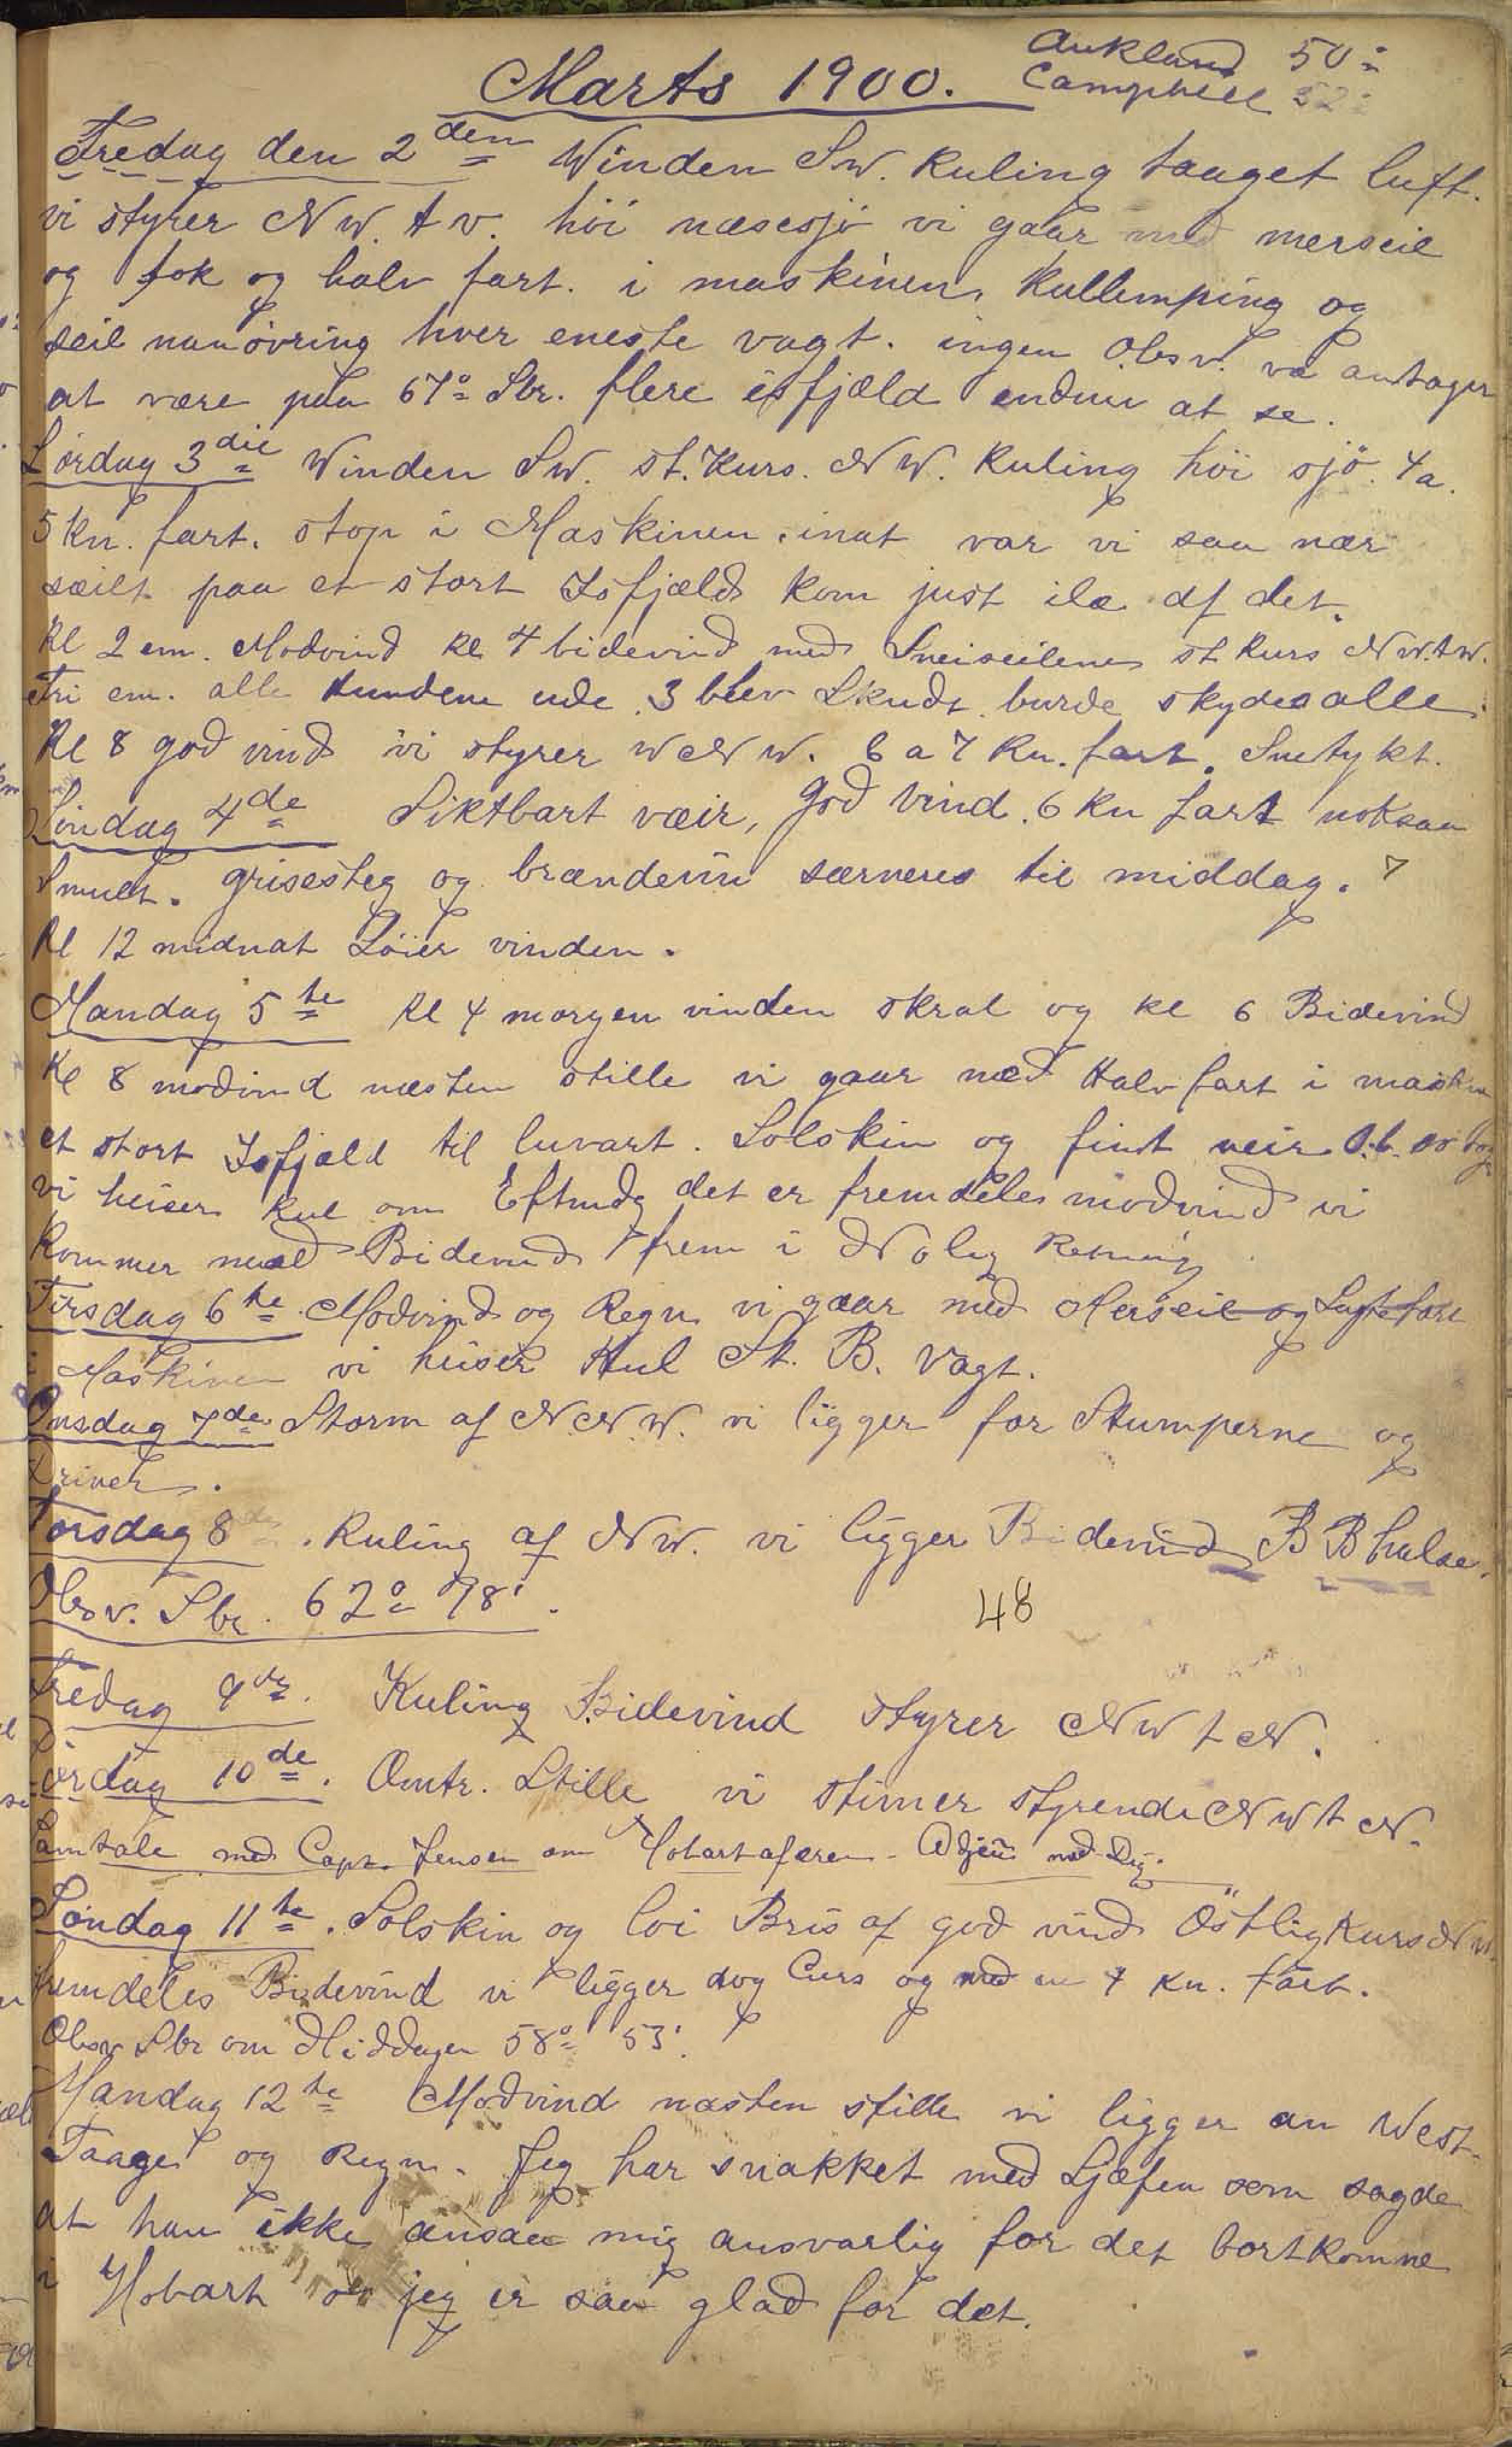 Aukland 50°
Marts 1900. Campbell 52°
Fredag den 2den Winden SW. Kuling taaget luft.
vi styrer NW. t v. höi næsesjö vi gaar med merseil
og fok og halv fart. i maskinen, Kullemping og
seil manövring hver eneste vagt. ingen Obsv. va antager
at være paa 67° Sbr. flere isfjæld endnu at se.
Lördag 3die Winden SW. st. Kurs. NW. Kuling höi sjö. 4 a.
5 Kn. fart. stop i Maskinen. inat var vi saa nær
sæilt paa et stort Isfjæld kom just ilæ af det.
Kl 2 em. Modvind kl 4 bidevind med Sneiseilene st Kurs NW.t W.
Fri em. alle Hundene ude. 3 blev Skudt. burde skydes alle.
Kl 8 god vind vi styrer WNW. 6 a 7 Kn. fart. Snetykt.
Söndag 4de Siktbart væir, god vind. 6 Kn fart noksaa
Smult. grisesteg og brændevin særveres til middag.
Kl 12 midnat Löier vinden.
Mandag 5te Kl 4 morgen vinden skral og kl 6 Bidevind
Kl 8 modvind næsten stille vi gaar med Halv fart i maskin
et stort Isfjæld til luvart. Solskin og fint veir
vi heiser Kul om Eftmdg det er fremdeles modvind vi
kommer med Bidevind frem i Nolig Retning
Tirsdag 6te Modvind og Regn vi gaar med Merseil og Sagte fart
i Maskinen vi heiser Kul St. B. Vagt.
Onsdag 7de Storm af NNW. vi ligger for Stumperne og
driver.
Torsdag 8de. Kuling af NW. vi ligger Bidevind B B halse.
Obsv. Sbr. 62° 98'.
48
Fredag 9de. Kuling Bidevind styrer NW t N.
Lördag 10de. Omtr. Stille vi stimer styrende NW t N.
Samtale med Capt. Jensen om Hobartaferen. Adjeu med Dig.
Söndag 11te. Solskin og löi Bris af god vind Östlig Kurs NW.
fremdeles Bidevind vi ligger dog Curs og med en 4 Kn. fart.
Obsv Sbr om Middagen 58° 53'.
Mandag 12te Modvind næsten stille vi ligger an West.
Taage og Regn. Jeg har snakket med Sjæfen som sagde
at han ikke ansaa mig ansvarlig for det bortkomne
i Hobart og jeg er saa glad for det.